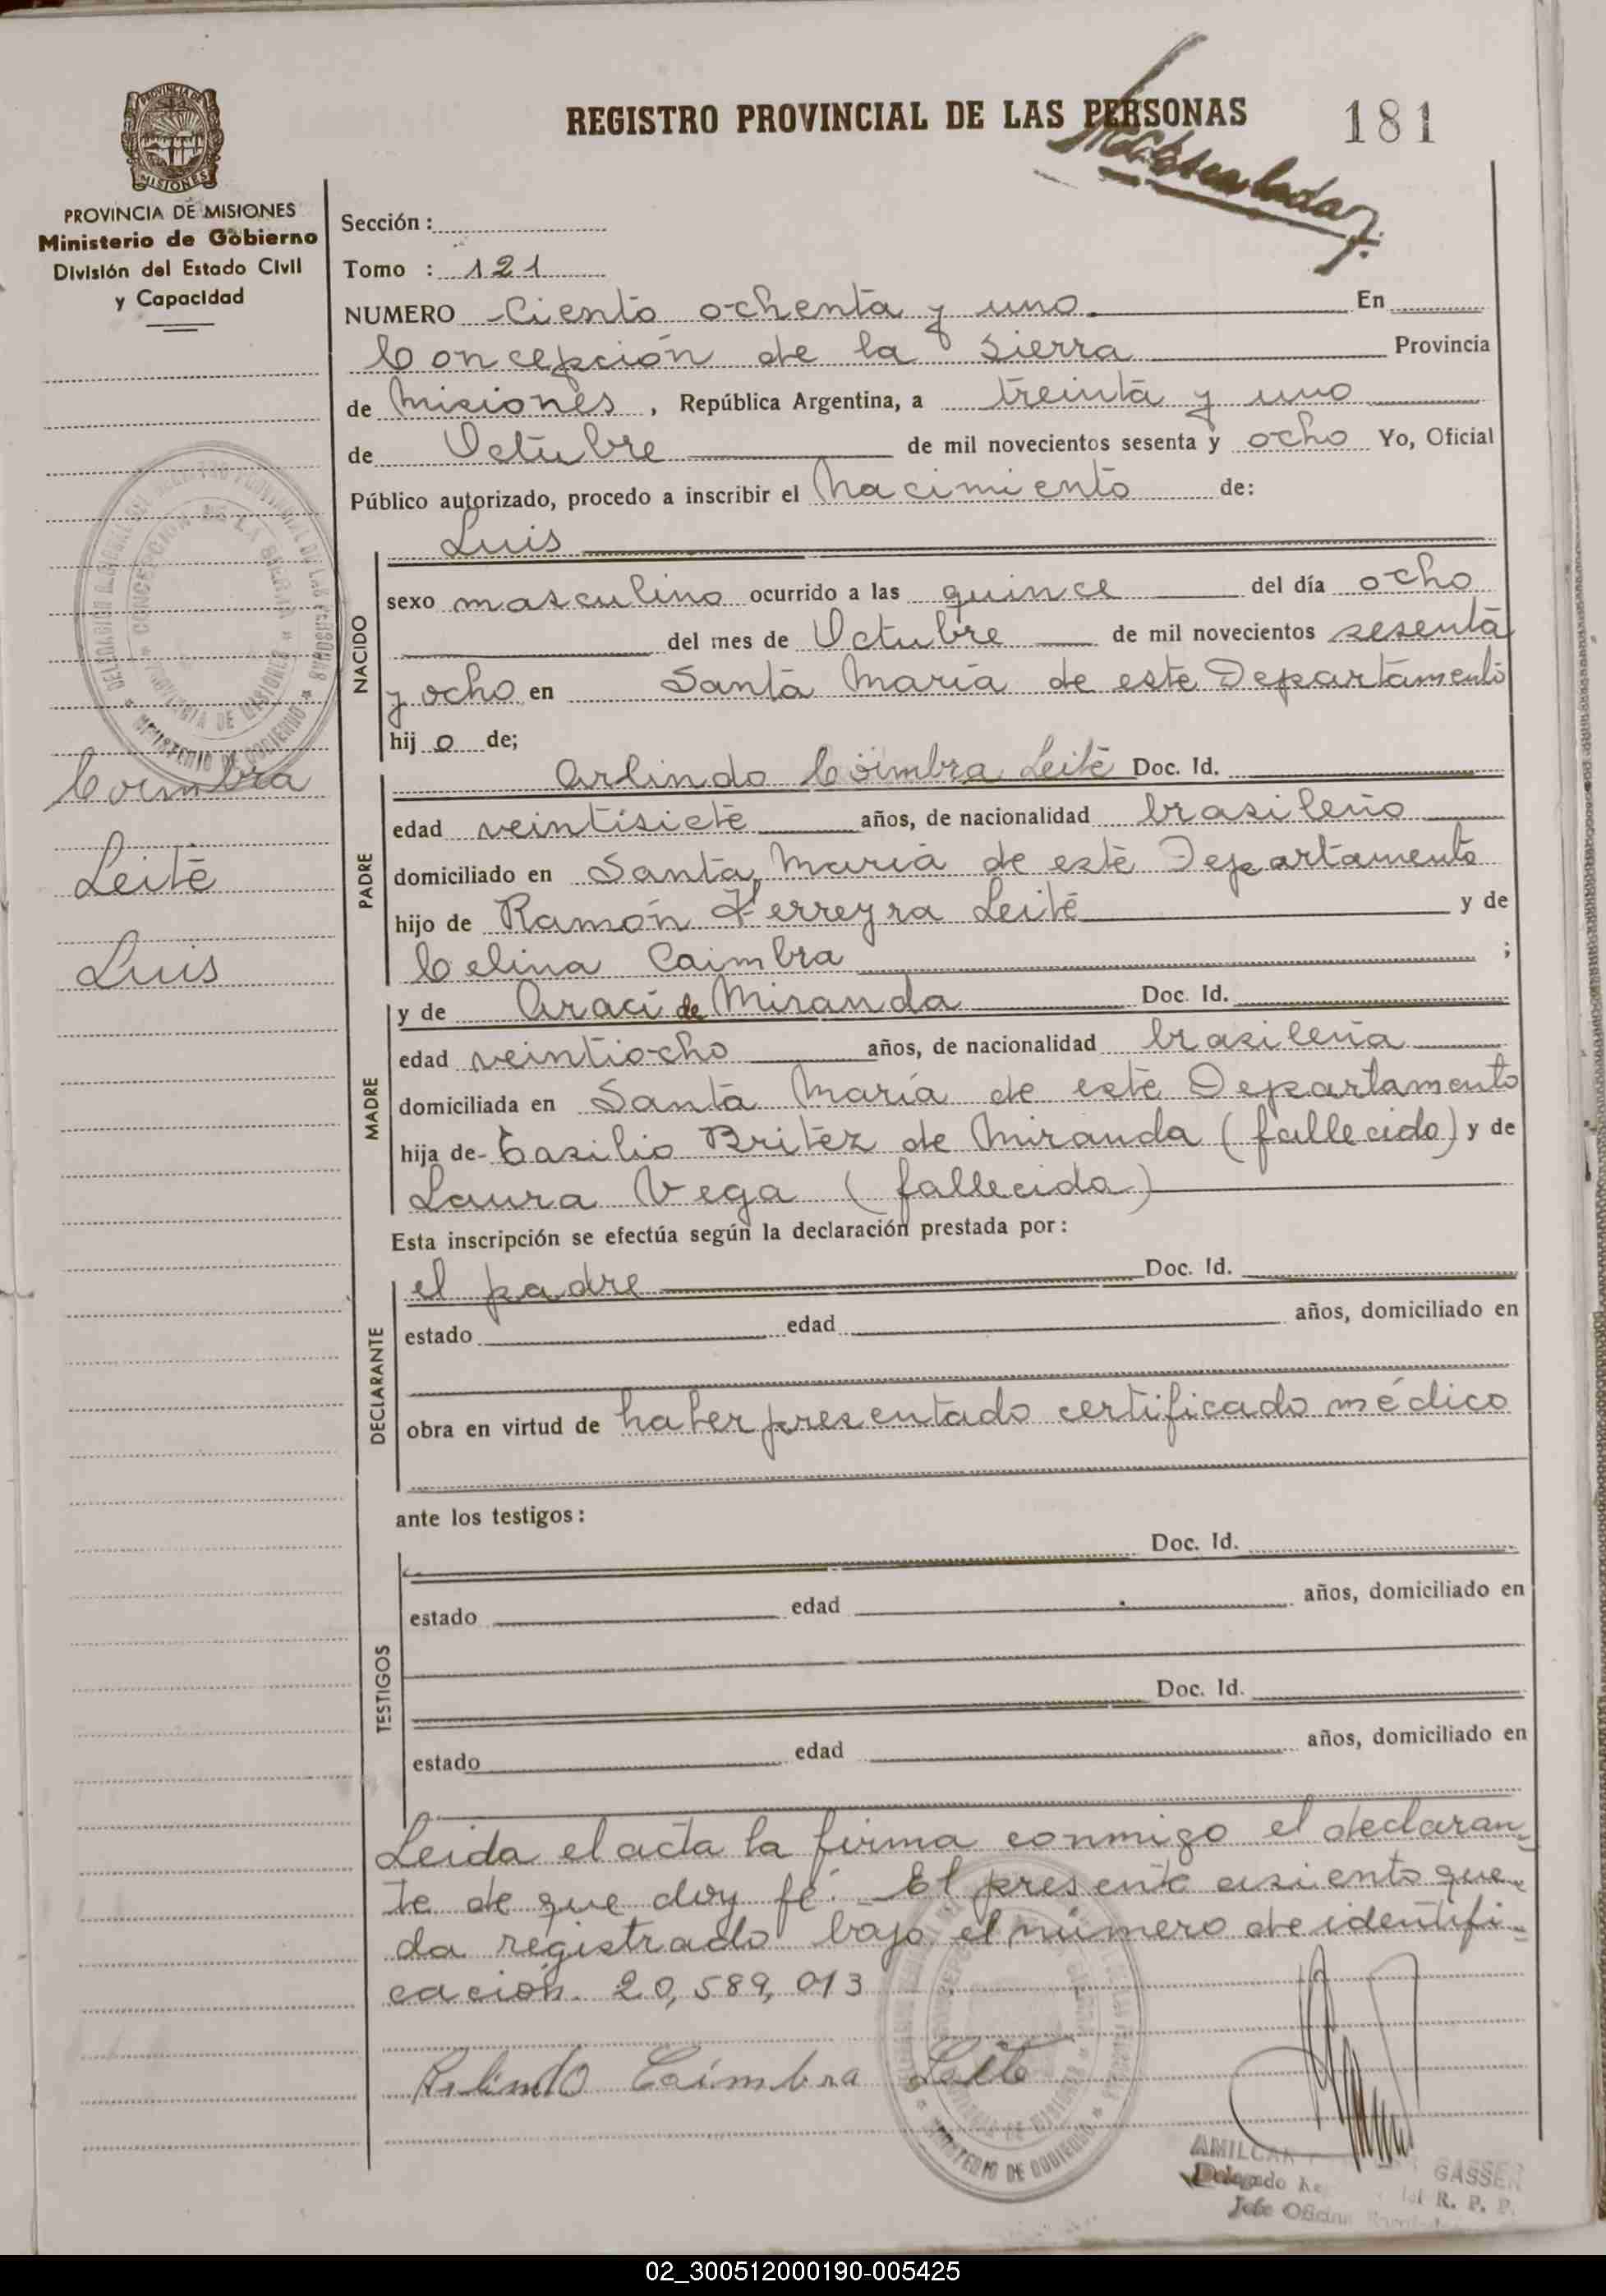 REGISTRO PROVINCIAL DE LAS PERSONAS
181
MISIONES
PROVINCIA DE MISIONES
Ministerio de Gobierno
División del Estado Civil
y Capacidad
Sección :
Tomo : 121
NUMERO Ciento ochenta y uno En
Concepción de la Sierra Provincia
de Misiones , República Argentina, a treinta y uno
de Octubre de mil novecientos sesenta y ocho Yo, Oficial
Público autorizado, procedo a inscribir el nacimiento de:
NACIDO
Luis
sexo masculino ocurrido a las quince del día ocho
del mes de Octubre de mil novecientos sesenta
y ocho en Santa María de este Departamento
hij o de;
Coimbra
Leite
Luis
PADRE
Arlindo Coimbra Leite Doc. Id.
edad veintisiete años, de nacionalidad brasileño
domiciliado en Santa María de este Departamento
hijo de Ramón Ferreyra Leite y de
Celina Caimbra ;
MADRE
y de Araci de Miranda Doc. Id.
edad veintiocho años, de nacionalidad brasileña
domiciliada en Santa María de este Departamento
hija de Basilio Britez de Miranda (fallecido) y de
Laura Vega (fallecida)
Esta inscripción se efectúa según la declaración prestada por :
DECLARANTE
el padre Doc. Id.
estado edad años, domiciliado en
obra en virtud de haber presentado certificado médico
ante los testigos :
TESTIGOS
Doc. Id.
estado edad años, domiciliado en
Doc. Id.
estado edad años, domiciliado en
Leida el acta la firma conmigo el declaran-
te de que doy fé. El presente asiento que-
da registrado bajo el número de identifi-
cación. 20,589,013
Arlindo Caimbra Leite
MINISTERIO DE GOBIERNO
AMILCAR GASSEN
Delegado R. P. P.
Jefe Oficina
02_300512000190-005425